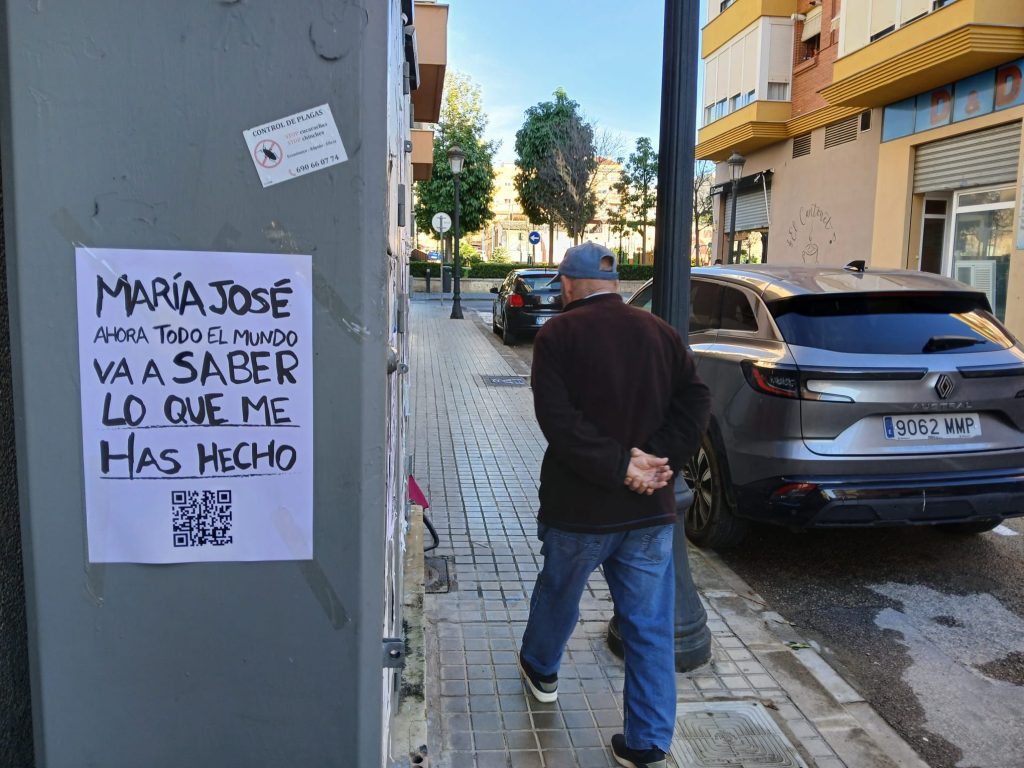 CONTROL DE PLAGAS
STOP cucarachas
STOP chinches
690 66 07 74
MARÍA JOSÉ
AHORA TODO EL MUNDO
VA A SABER
LO QUE ME
HAS HECHO
El Canterito
D & D
AUSTRAL
9062 MMP